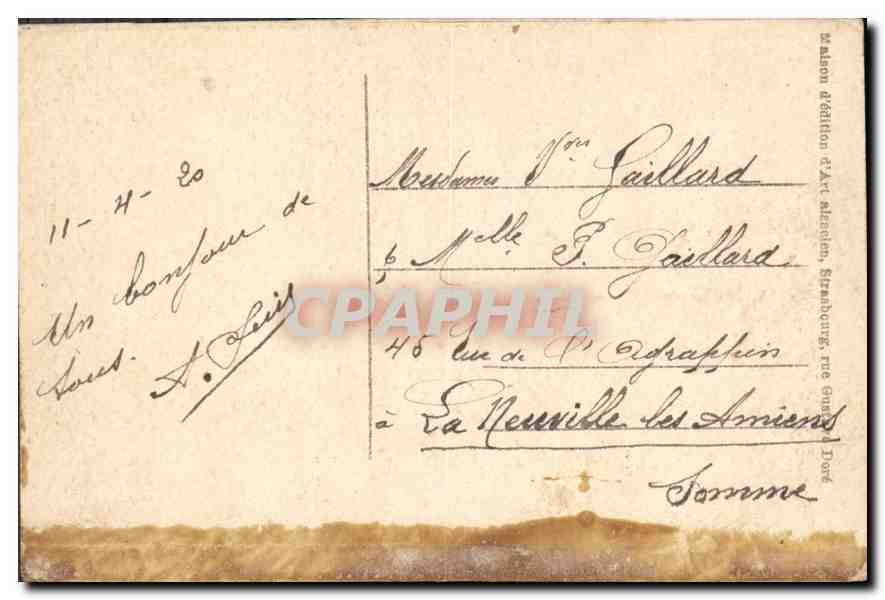 11-4-20
Un bonjour de
tous.
A.
Mesdames Vves Gaillard
& Melle P. Gaillard
45 Rue de l'Agrappin
à La Neuville les Amiens
Somme
Maison d'édition d'Art alsacien, Strasbourg, rue Gustave Doré
CPAPHIL